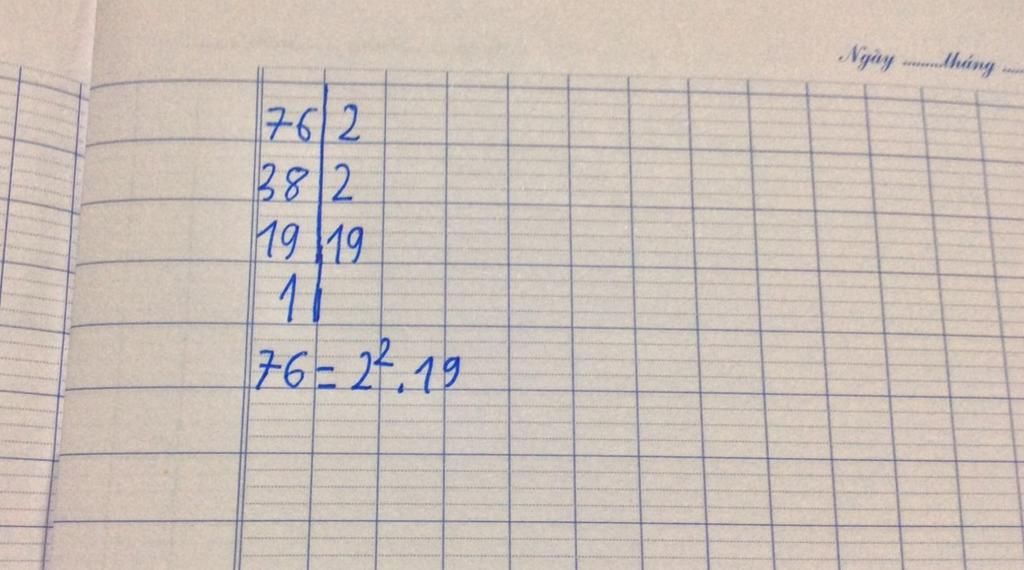 Ngày ........tháng ....
76 | 2
38 | 2
19 | 19
1 |
76 = 2². 19